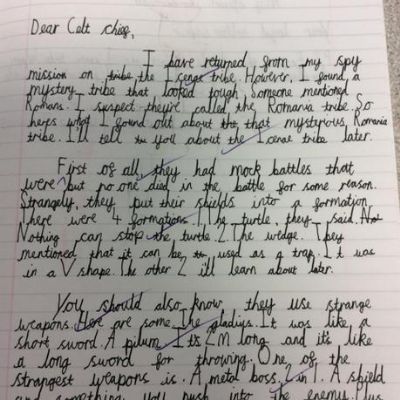 Dear Celt chief,
I have returned from my spy
mission on tribe the Icenae tribe. However, I found a
mystery tribe that looked tough. Someone mentioned
Romans. I suspect they're called the Romania tribe. So
heres what I found out about the that mysterious, Romania
tribe. I'll tell you about the Icenae tribe later.
First of all, they had mock battles that
were but no one died in the battle for some reason.
Strangely, they put their shields into a formation
there were 4 formations. 1. The turtle, they said. Not
Nothing can stop the turtle. 2. The wedge. They
mentioned that it can be used as a trap. It was
in a V shape. The other 2 ill learn about later.
You should also know they use strange
weapons. Here are some. The gladius. It was like a
short sword. A pilum. It's 2M long and it's like
a long sword for throwing. One of the
strangest weapons is. A metal boss. 2 in 1. A shield
and something you push into the enemy. Plus